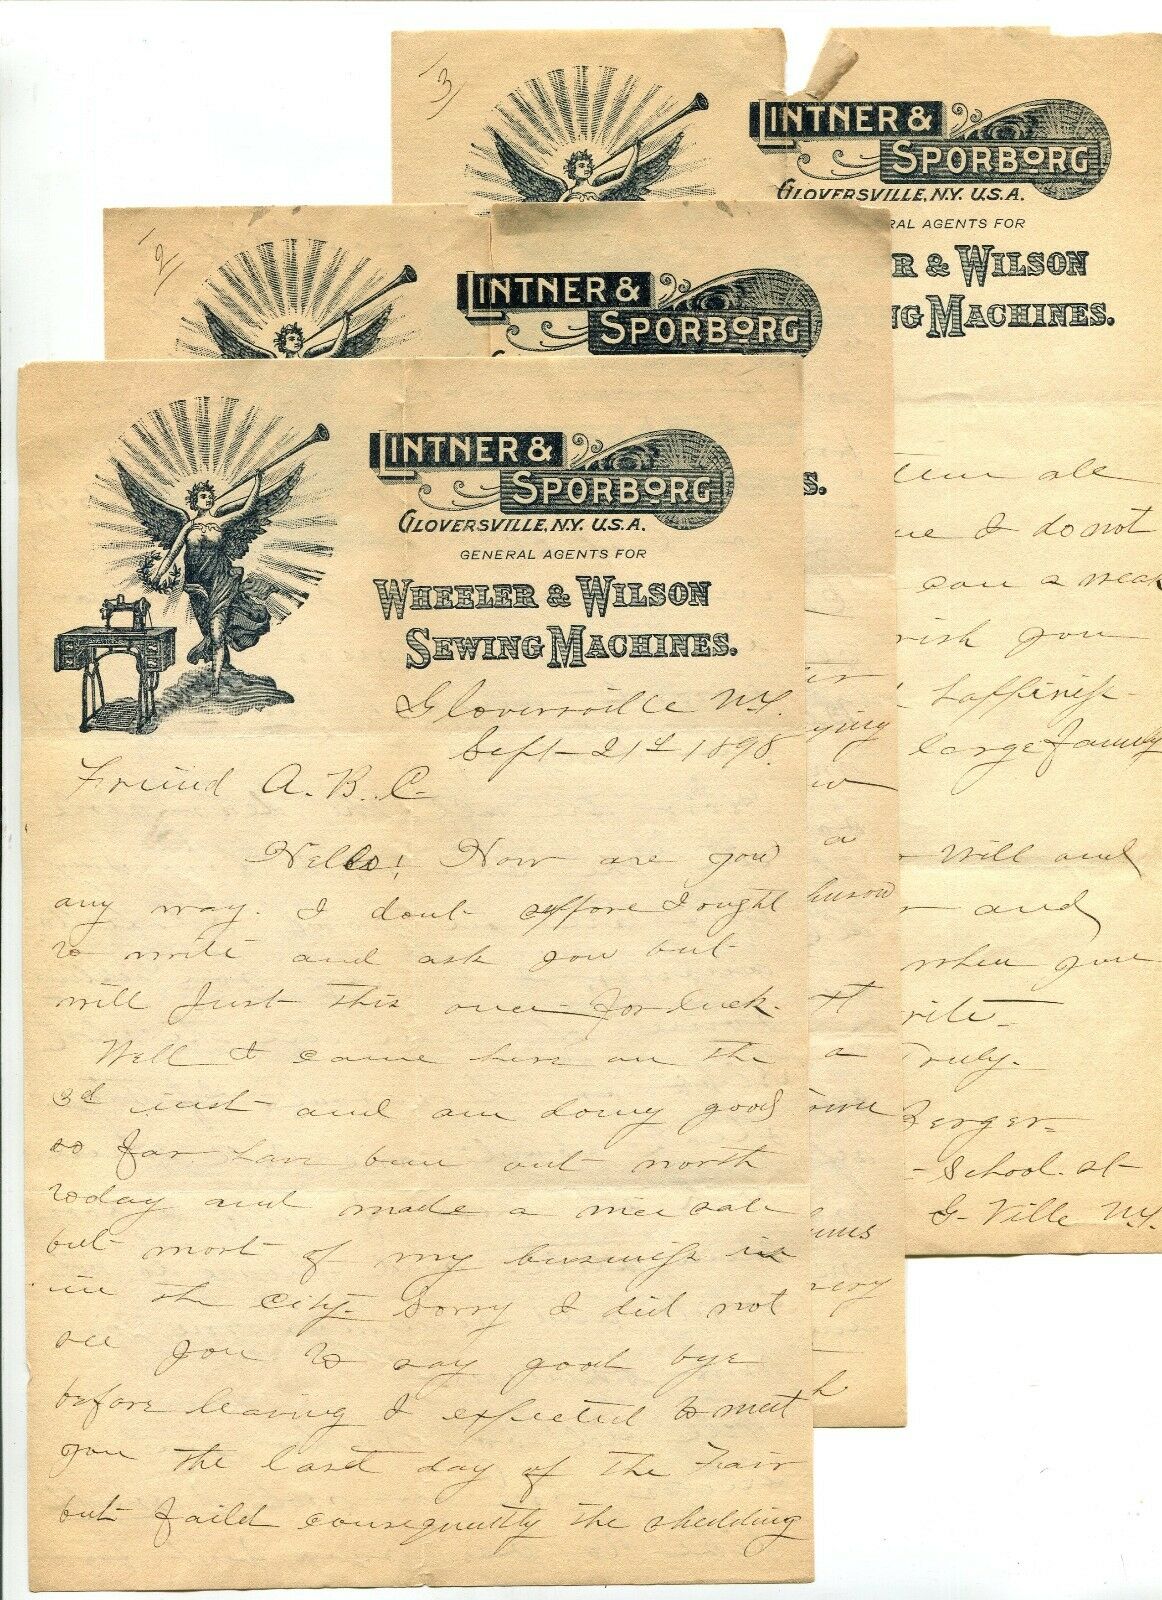 LINTNER &
SPORBORG
GLOVERSVILLE, N.Y. U.S.A.
GENERAL AGENTS FOR
WHEELER & WILSON
SEWING MACHINES.
Gloversville NY.
Sept- 21st 1898.
Friend A. B. C-
Hello! How are you
any way. I dont suppose I ought
to write and ask you but
will just this once- for luck.
Well I came here on the
3d inst and am doing good
so far have been out north
today and made a nice sale
but most of my business is
in the City- Sorry I did not
see you to say good bye
before leaving I expected to meet
you the last day of the Fair
but faild consequently the shedding
2/
LINTNER &
SPORBORG
S.
ying
a
a
h
3/
LINTNER &
SPORBORG
GLOVERSVILLE, N.Y. U.S.A.
RAL AGENTS FOR
R & WILSON
NG MACHINES.
ale
ue I do not
can a
ish you
happiness-
large family
Will and
and
when you
rite-
Truly-
Berger-
- School- st-
G- Ville NY.